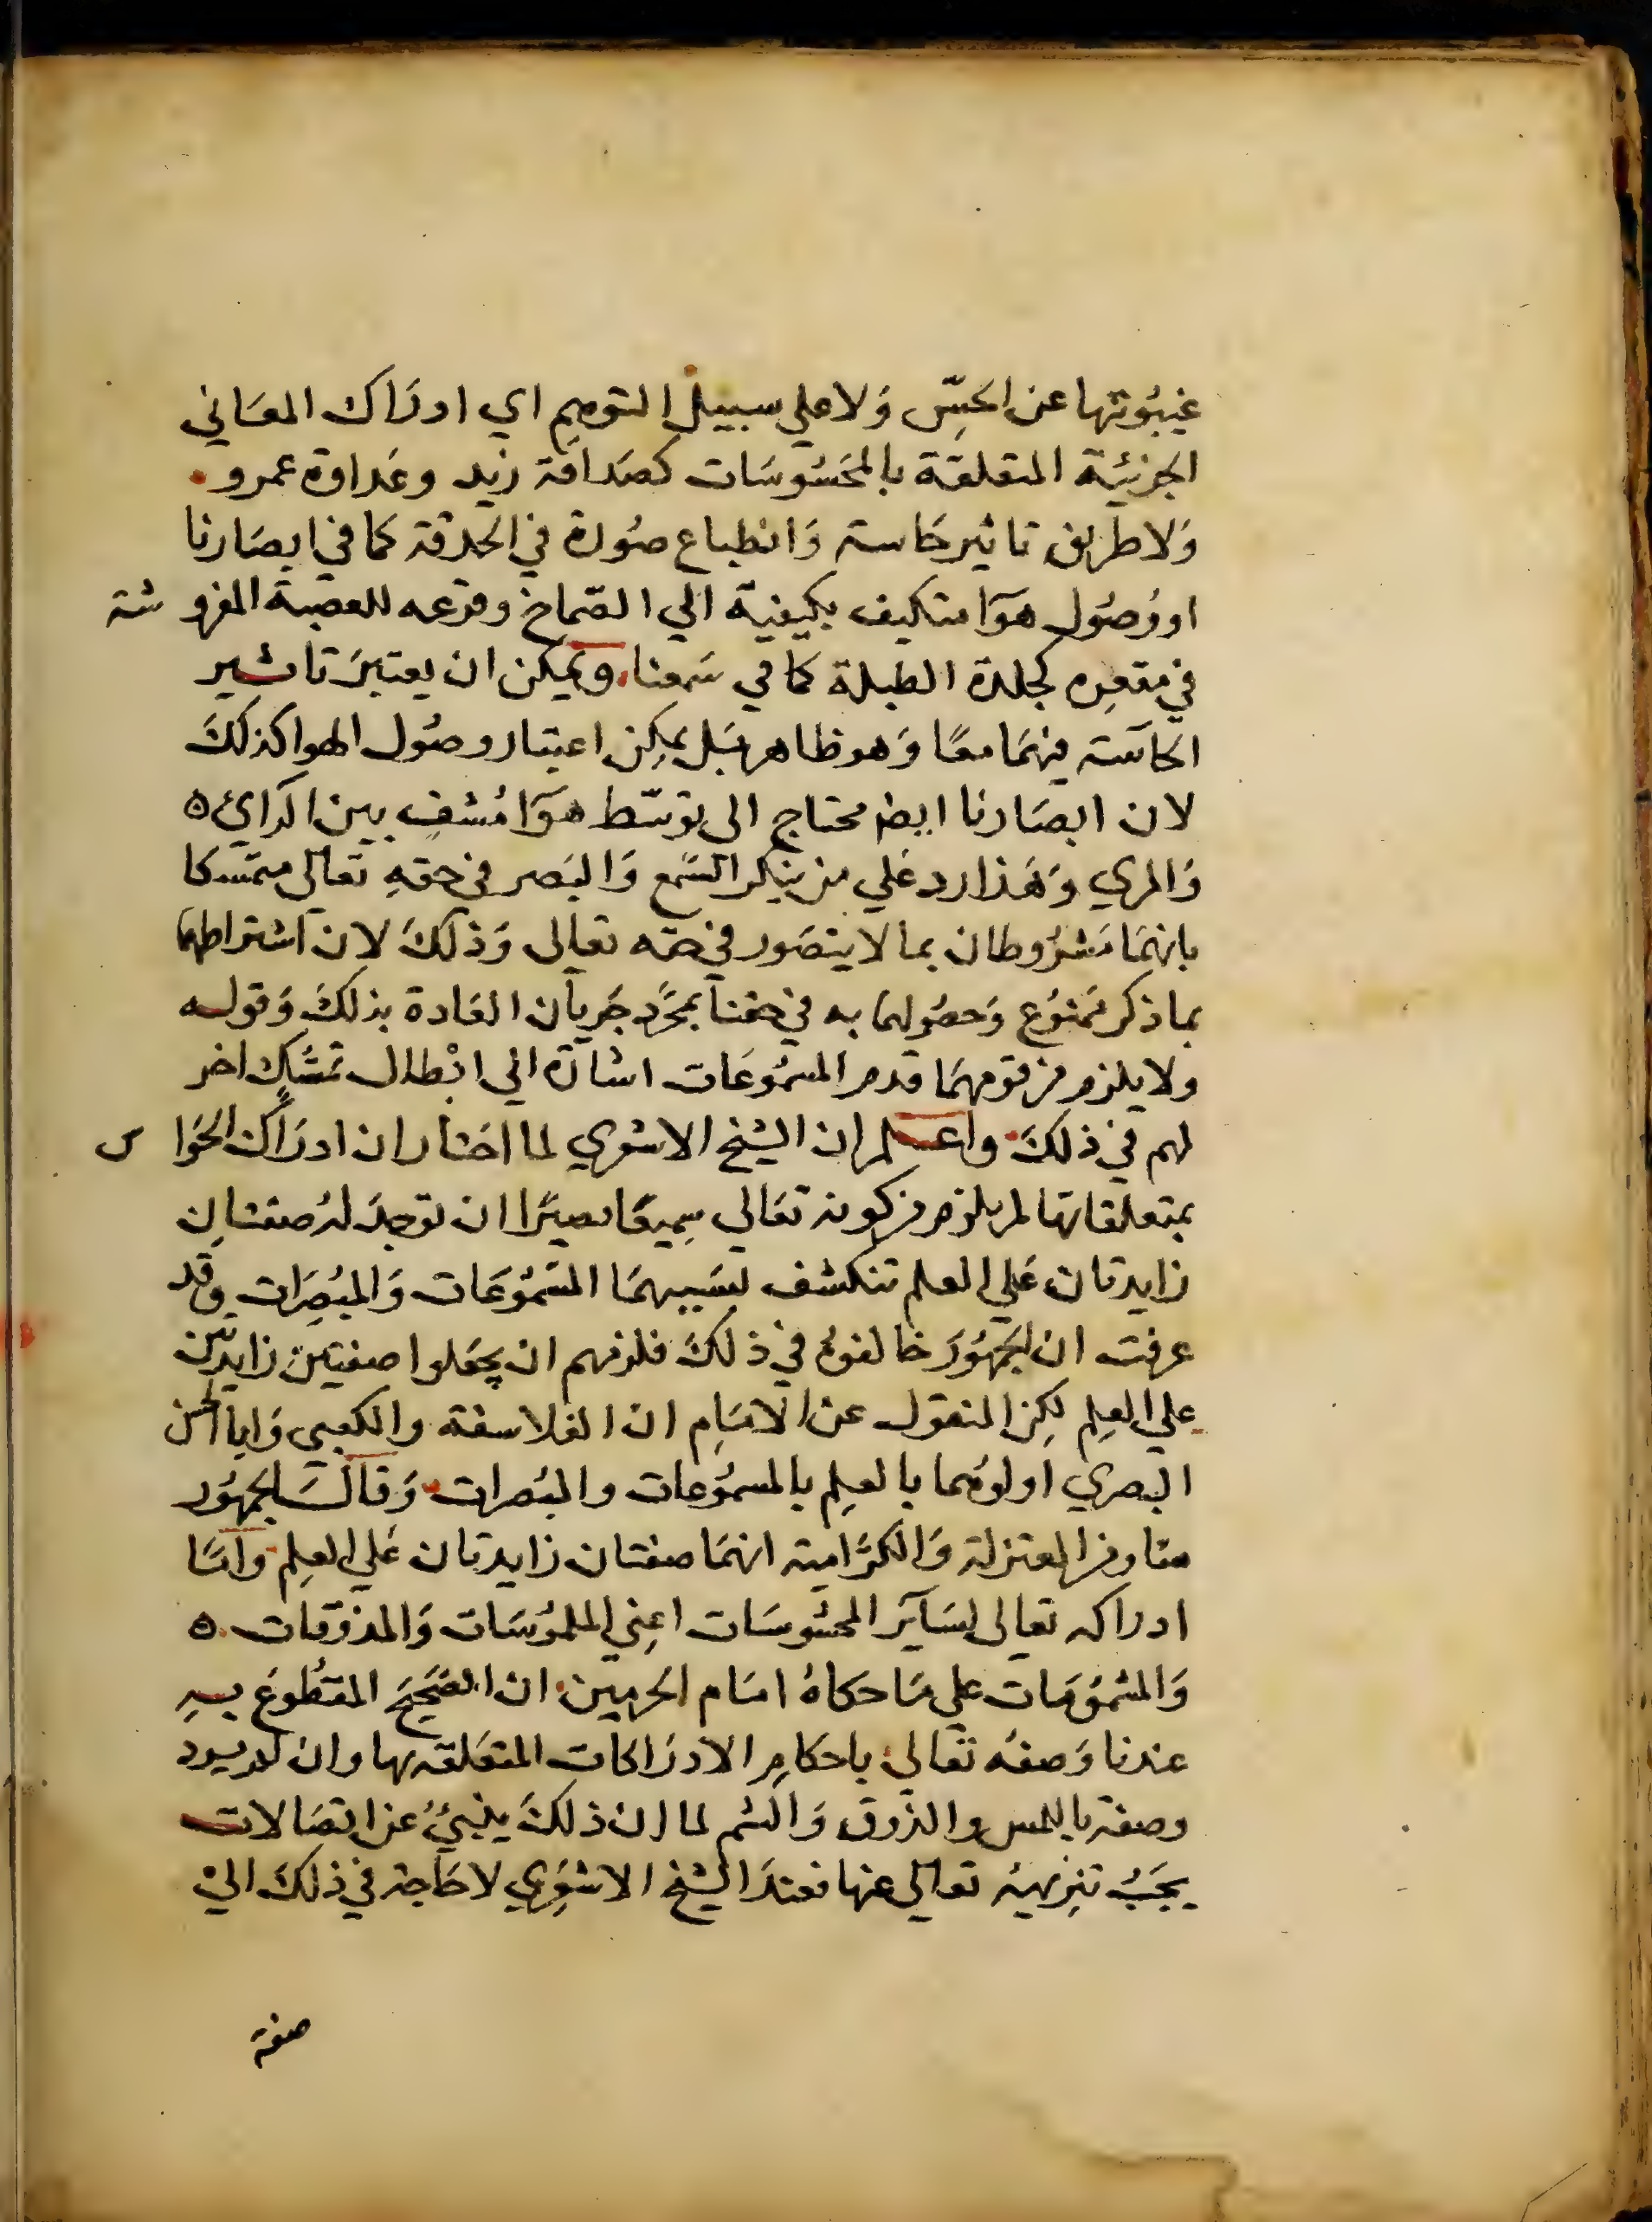 غيبُوتتها عن الحِسّ وَلا علي سبيل التوهم اي ادرَاك المعَاني
الجزئيّة المتعلقة بالمحَسُوسَات كصَداقة زيد وعَداوة عمرو
وَلا طريق تاثير حَاسة وَانطباع صُورة في الحدقة كما في ابصَارنا
او وُصُول هوَا متكيف بكيفية الي الصّماخ وقرعه للعصبة المفروشة
في مقعره كجلدة الطبلة كما في سَمعنا ويمكن ان يعتبرَ تاثير
الحاسّة فيهمَا معًا وَهو ظاهر بَل يمكِن اعتبار وصُول الهوا كذلكَ
لان ابصَارنا ايضا محتاج الى توسّط هوَا مُشف بين الرايء
وَالمري وَهَذا رد عَلي من ينكر السَّمع وَالبَصر في حقهِ تعَالى متمسكا
بانهمَا مَشرُوطان بما لا يتصَور في حقه تعالى وَذلكَ لان اشتراطهما
بما ذكر مَمنوُع وَحصُولهما به في حقنا بمجَرَّد جَريان العَادة بذلكَ وَقوله
ولا يلزم من قومهمَا قدم المسمُوعَات اشارَة الي ابْطال تمسُّكٍ اخر
لهم في ذلكَ واعلم ان الشيخ الاشعري لما اختار ان ادرَاك الحَواس
بمتعلقاتها لم يلزم من كونه تعَالي سِميعًا بصيرًا ان توجدَ لهُ صفتان
زايدتان عَلي العلم تنكشف بسَببهمَا المَسْمُوعَات وَالمبُصِرَات وقد
عرفت ان الجَمهُورَ خالفوهُ في ذلكَ فلزمهم ان يجعَلوا صفتين زايدتين
علي العِلم لكِن المنقول عن الامَام ان الفلاسفة والكعبي وَابا الحسن
البصري اولوُهما بالعلِم بالمسمُوعات والمبُصرات وَقالَ الجمهُور
منا ومن المعتزلة وَالكَرَّامية انهمَا صفتان زايدتان عَلي العِلم وامَّا
ادراكه تعالى لسَآير المحسُوسَات اعِني الملمُوسَات وَالمذوقات
وَالمشمُومَات علي مَا حكاهُ امَام الحَرمين ان الصَّحِيحَ المقطُوعَ بهِ
عندنا وَصفهُ تعَالي باحكامِ الادرَاكات المتعَلقة بها وان لم يرد
وصفه باللمس والذوق وَالشم لما ان ذلكَ ينبيُ عن اتصَالات
يجَبُ تنزِيههُ تعالى عنها فعندَ الشيخ الاشعَرِي لا حَاجة في ذلكَ الي
صفة